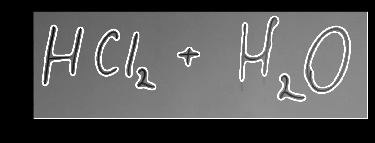 HCl₂ + H₂O